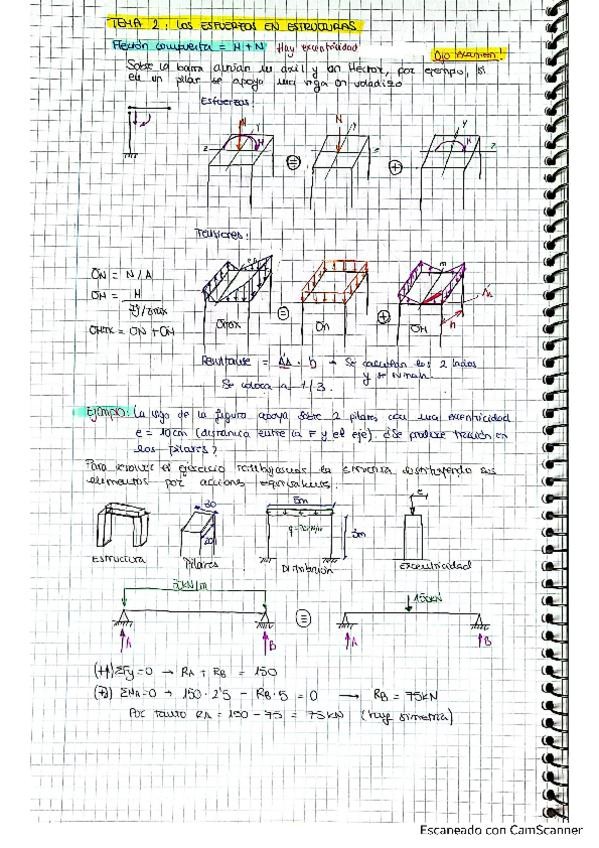 TEMA 2: LOS ESFUERTOS EN ESTRUCTURAS
Flexión compuesta = M + N Hay excentricidad
Ojo examen!
Sobre la barra actúan un axil y un flector, por ejemplo, si
en un pilar se apoya una viga en voladizo
Esfuerzos:
N
y
M
z
≡
N
z
+
y
M
z
Tensiones:
σN = N / A
σM = M
σmax = σN + σM
σmax
≡
σN
+
σM
Resultante = · b → Se calculan los 2 lados
y se suman.
Se coloca a 1/3.
Ejemplo: La viga de la figura apoya sobre 2 pilares con una excentricidad
e = 10cm (distancia entre la F y el eje). ¿Se produce tracción en
los pilares?
Para resolver el ejercicio la estructura sustituyendo sus
elementos por acciones equivalentes:
30
5m
3m
e
Estructura
Pilares
Distribución
Excentricidad
30KN/m
A
B
≡
150KN
A
B
(+↑) ΣFy=0 → RA + RB = 150
ΣMA=0 → 150·2'5 - RB·5 = 0 → RB = 75KN
Por tanto RA = 150 - 75 = 75KN (hay simetría)
Escaneado con CamScanner